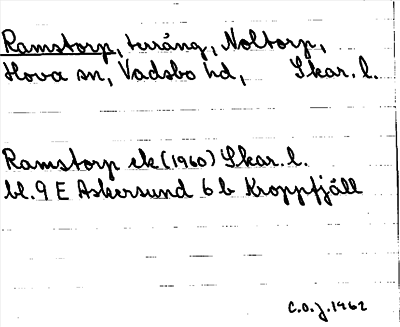 Ramstorp, terräng, Noltorp,
Hova sn, Vadsbo hd, Skar. l.
Ramstorp ek (1960) Skar. l.
bl. 9 E Askersund 6 b Kroppfjäll
C.O.J. 1962